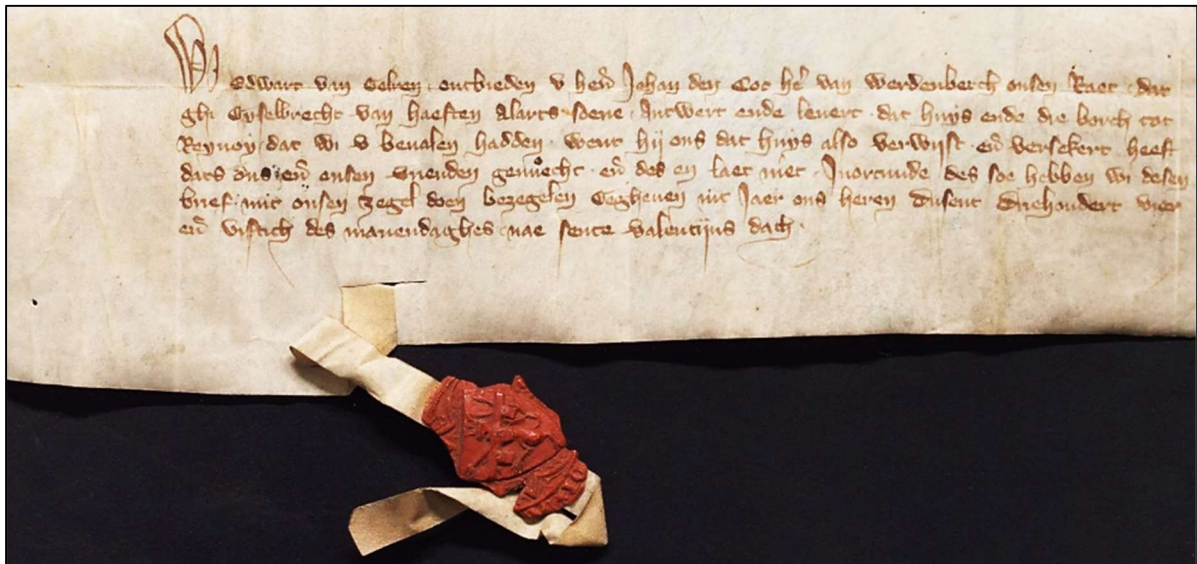 Wi Edwart van Gelren ontbieden v her̄ Johan den Coc her̄ van Werdenberch onsen Raet dat
ghi Ghyselbrecht van haeften Alarts soene Antwert ende leuert dat huys ende die borch tot
Reynoy dat wi v beualen hadden want hij ons dat huys also verwijst en̄ versekert heeft
dats ons en̄ onsen vrienden genuecht en̄ des en laet niet Jnorcunde des soe hebben wi desen
brief mit onsen zegel doen bezegelen Gegheuen int Jaer ons heren Dusent driehondert vier
en̄ viftich des manendaghes nae sente valentijns dach